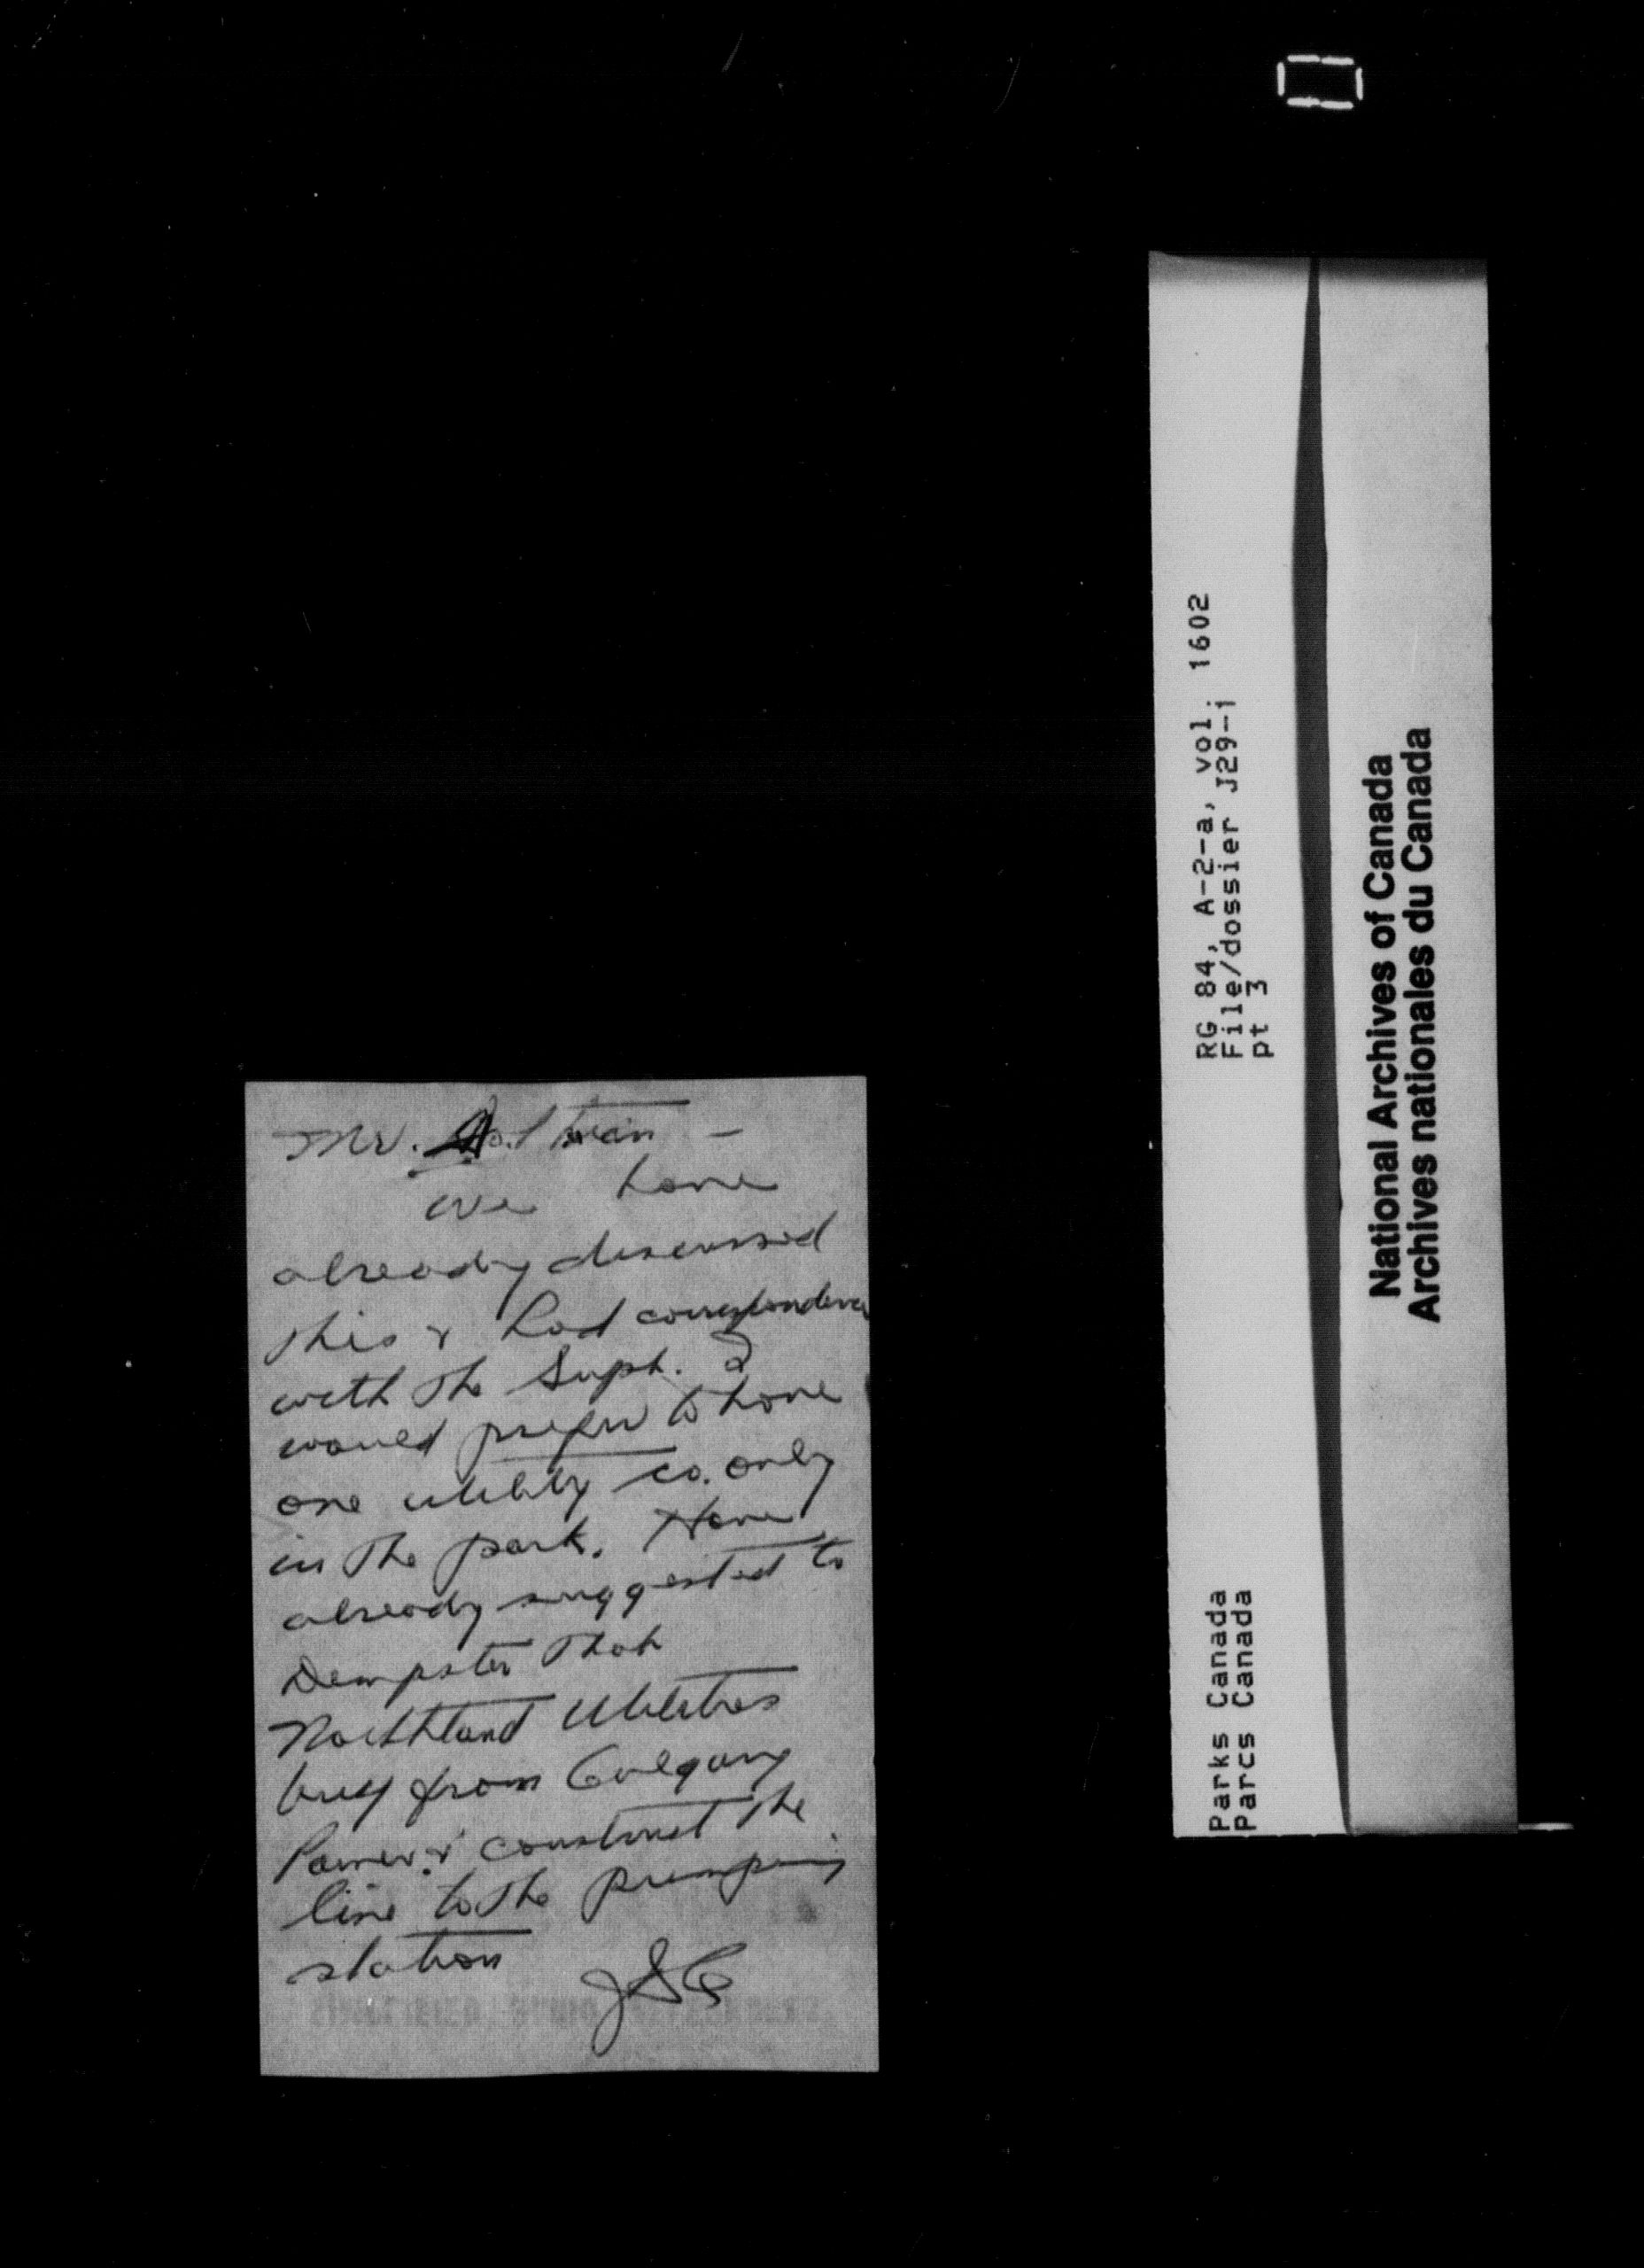 Mr.
We have
already discussed
this & had correspondence
with the Supt. I
would prefer to have
one utility co. only
in the park. Have
already suggested to
Dempster that
Northland Utilities
buy from Calgary
Power & construct the
line to the pumping
station
RG 84, A-2-a, vol. 1602
File/dossier J29-j
pt 3
Parks Canada
Parcs Canada
National Archives of Canada
Archives nationales du Canada